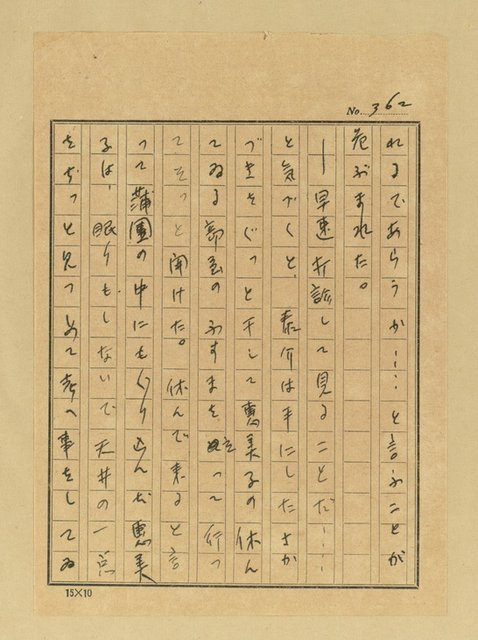 No. 362
れるであらうか……と言ふことが
危ぶまれた。
――早速打診して見ることだ……
と気づくと、泰介は手にしたさか
づきをぐっと干して恵美子の休ん
でゐる部屋のふすまを立って行っ
てそっと開けた。休んで来ると言
って蒲團の中にもぐり込んだ恵美
子は、眠りもしないで天井の一点
をぢっと見つめて考へ事をしてゐ
15×10